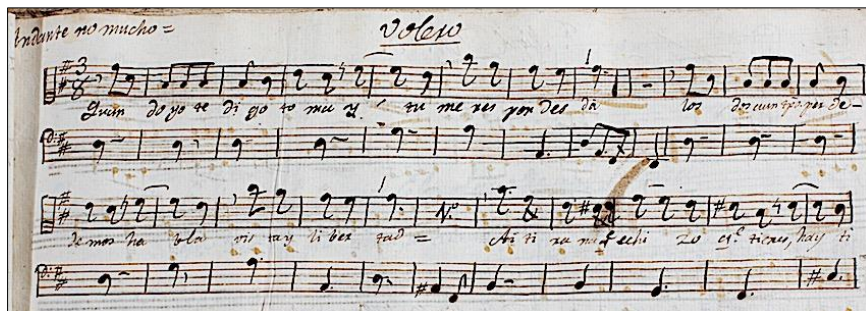 Andante no mucho =
Volero
Quan do yo te di go to ma y tu me res pon des da los dos
de mos ha bla vis ta y li ber tad = Ai ti ra ni echi zo q.e tienes, hay ti